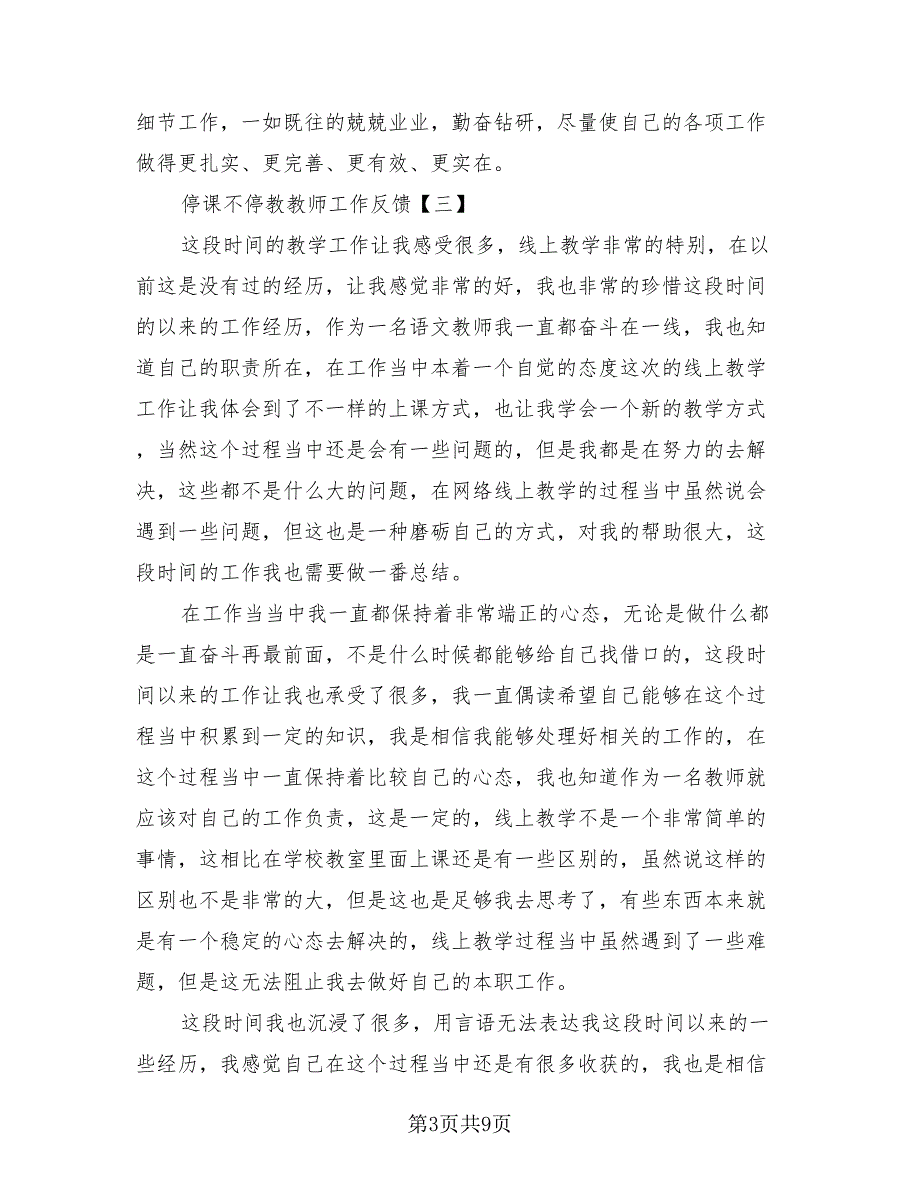 细节工作，一如既往的兢兢业业，勤奋钻研，尽量使自己的各项工作
做得更扎实、更完善、更有效、更实在。
停课不停教教师工作反馈【三】
这段时间的教学工作让我感受很多，线上教学非常的特别，在以
前这是没有过的经历，让我感觉非常的好，我也非常的珍惜这段时间
的以来的工作经历，作为一名语文教师我一直都奋斗在一线，我也知
道自己的职责所在，在工作当中本着一个自觉的态度这次的线上教学
工作让我体会到了不一样的上课方式，也让我学会一个新的教学方式
，当然这个过程当中还是会有一些问题的，但是我都是在努力的去解
决，这些都不是什么大的问题，在网络线上教学的过程当中虽然说会
遇到一些问题，但这也是一种磨砺自己的方式，对我的帮助很大，这
段时间的工作我也需要做一番总结。
在工作当当中我一直都保持着非常端正的心态，无论是做什么都
是一直奋斗再最前面，不是什么时候都能够给自己找借口的，这段时
间以来的工作让我也承受了很多，我一直偶读希望自己能够在这个过
程当中积累到一定的知识，我是相信我能够处理好相关的工作的，在
这个过程当中一直保持着比较自己的心态，我也知道作为一名教师就
应该对自己的工作负责，这是一定的，线上教学不是一个非常简单的
事情，这相比在学校教室里面上课还是有一些区别的，虽然说这样的
区别也不是非常的大，但是这也是足够我去思考了，有些东西本来就
是有一个稳定的心态去解决的，线上教学过程当中虽然遇到了一些难
题，但是这无法阻止我去做好自己的本职工作。
这段时间我也沉浸了很多，用言语无法表达我这段时间以来的一
些经历，我感觉自己在这个过程当中还是有很多收获的，我也是相信
第3页共9页